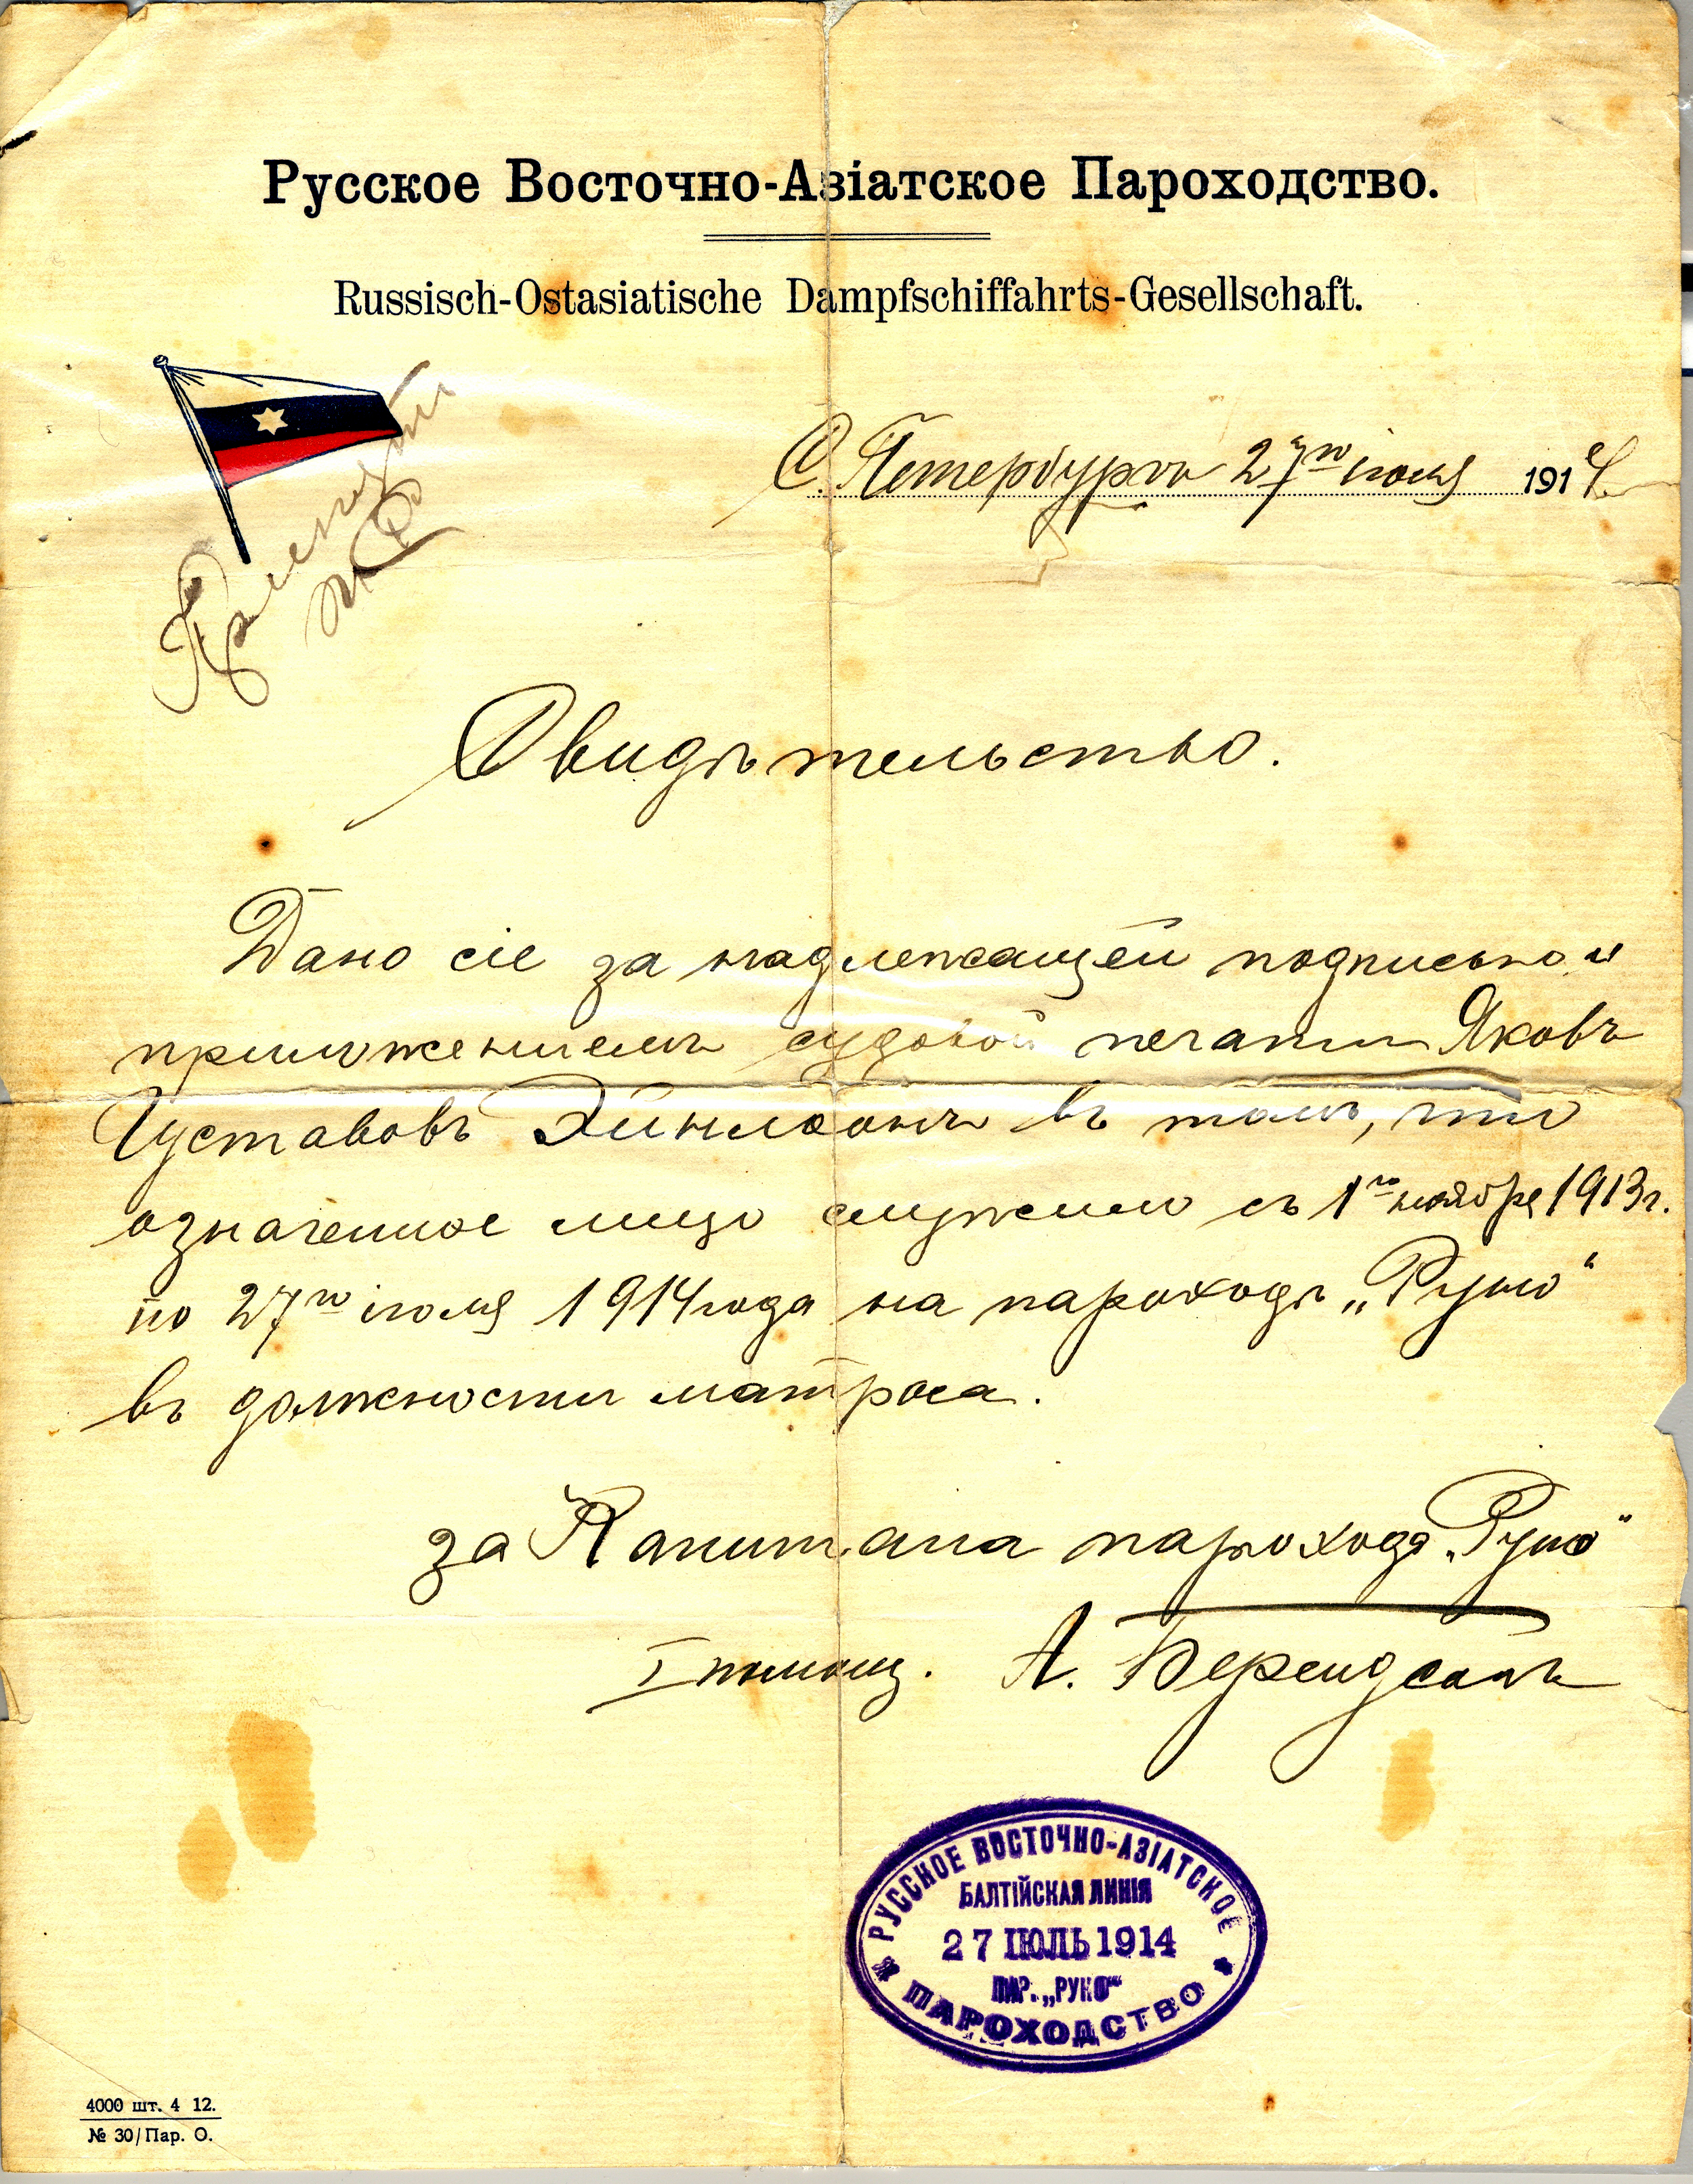 Русское Восточно-Азіатское Пароходство.
Russisch-Ostasiatische Dampfschiffahrts-Gesellschaft.
С. Петербургъ 27го іюля 1914
Свидѣтельство.
Дано сіе за надлежащей подписью и
приложеніемъ судовой печати Яковъ
Густавовъ въ томъ, что
означенное лицо служило съ 1го ноября 1913 г.
по 27го іюля 1914 года на пароходѣ „Руно“
въ должности матроса.
за Капитана парохода „Руно“
I помощ. А. Берендсонъ
РУССКОЕ ВОСТОЧНО-АЗІАТСКОЕ
БАЛТІЙСКАЯ ЛИНІЯ
27 ІЮЛЬ 1914
ПАР. „РУНО“
ПАРОХОДСТВО
4000 шт. 4 12.
№ 30/Пар. О.